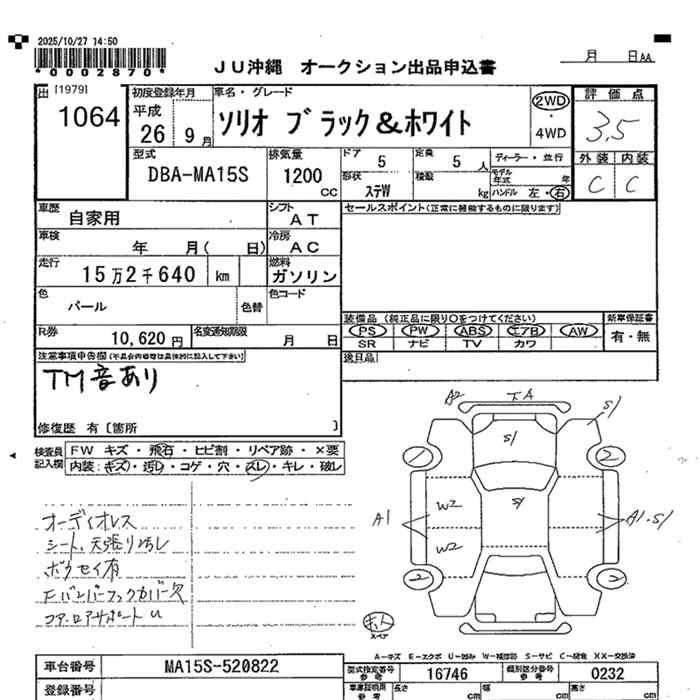 2025/10/27 14:50
*0002870*
JU沖縄 オークション出品申込書
月 日AA
出 [1979]
1064
初度登録年月
平成
26 9 月
車名・グレード
ソリオ ブラック&ホワイト
2WD
・
4WD
評価点
3.5
外装 内装
C C
型式
DBA-MA15S
排気量
1200 cc
ドア 5
定員 5 人
形状 ステW
積載 kg
ディーラー・並行
モデル年式 年
ハンドル 左・右
車歴 自家用
シフト AT
セールスポイント(正常に機能するものに限ります)
車検 年 月( 日)
冷房 AC
走行 15万2千640 km
燃料 ガソリン
色 パール
色替
色コード
装備品(純正品に限り○をつけてください)
新車保証書
PS PW ABS エアB AW
SR ナビ TV カワ
有・無
R券 10,620 円
名変通知期限 月 日
後日品
注意事項申告欄(不具合内容等は具体的に記入して下さい)
TM音あり
修復歴 有〔箇所 〕
検査員記入欄
FW キズ・飛石・ヒビ割・リペア跡・×要
内装:キズ・汚レ・コゲ・穴・スレ・キレ・破レ
オーディオレス
シート、天張り汚レ
ボウセイ有
Fバンパーフックカバー欠
コア.ロアサポート U
A2 下A S1
S1
1 2
W2 S1
A1 A1.S1
W2
2 2
スペア
A-キズ E-エクボ U-凹み W-補修跡 S-サビ C-腐食 XX-交換済
車台番号 MA15S-520822
型式指定番号 参考 16746
類別区分番号 参考 0232
登録番号
車庫証明用 参考
長さ cm
幅 cm
高さ cm